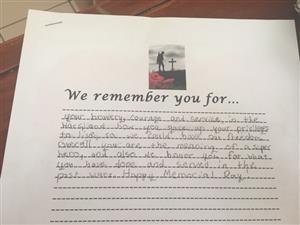 We remember you for...
your bravery, courage and service in the
and how you gave up your privileges
to help so we could have our freedom
overall you are the meaning of a super
hero, and also we honor you for what
you have done and served in the
past wars. Happy Memorial Day